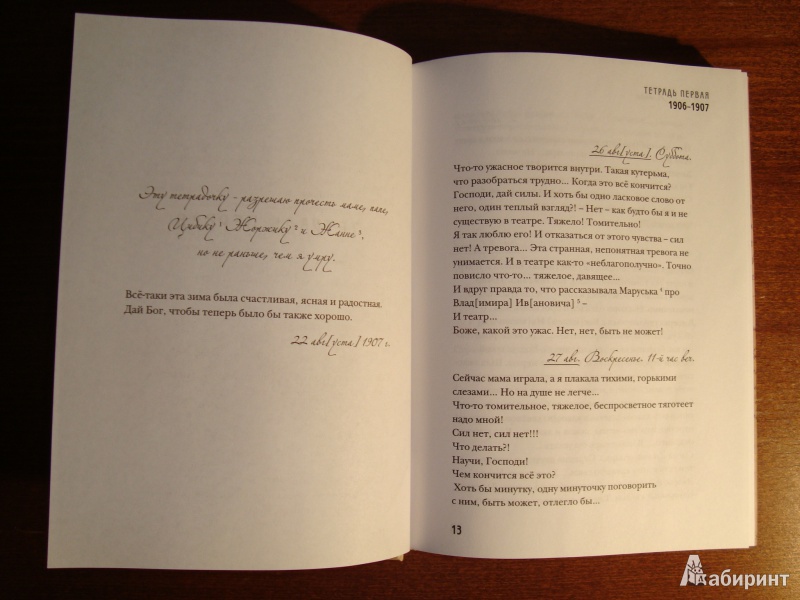 Эту тетрадочку – разрешаю прочесть маме, папе,
Цибику ¹ Жоржику ² и Жанне ³,
но не раньше, чем я умру.
Всё-таки эта зима была счастливая, ясная и радостная.
Дай Бог, чтобы теперь было бы также хорошо.
22 авг[уста] 1907 г.
ТЕТРАДЬ ПЕРВАЯ
1906–1907
26 авг[уста]. Суббота.
Что-то ужасное творится внутри. Такая кутерьма,
что разобраться трудно... Когда это всё кончится?
Господи, дай силы. И хоть бы одно ласковое слово от
него, один теплый взгляд?! – Нет – как будто бы я и не
существую в театре. Тяжело! Томительно!
Я так люблю его! И отказаться от этого чувства – сил
нет! А тревога... Эта странная, непонятная тревога не
унимается. И в театре как-то «неблагополучно». Точно
повисло что-то... тяжелое, давящее...
И вдруг правда то, что рассказывала Маруська ⁴ про
Влад[имира] Ив[ановича] ⁵ –
И театр...
Боже, какой это ужас. Нет, нет, быть не может!
27 авг. Воскресенье. 11-й час веч.
Сейчас мама играла, а я плакала тихими, горькими
слезами... Но на душе не легче...
Что-то томительное, тяжелое, беспросветное тяготеет
надо мной!
Сил нет, сил нет!!!
Что делать?!
Научи, Господи!
Чем кончится всё это?
Хоть бы минутку, одну минуточку поговорить
с ним, быть может, отлегло бы...
13
Лабиринт